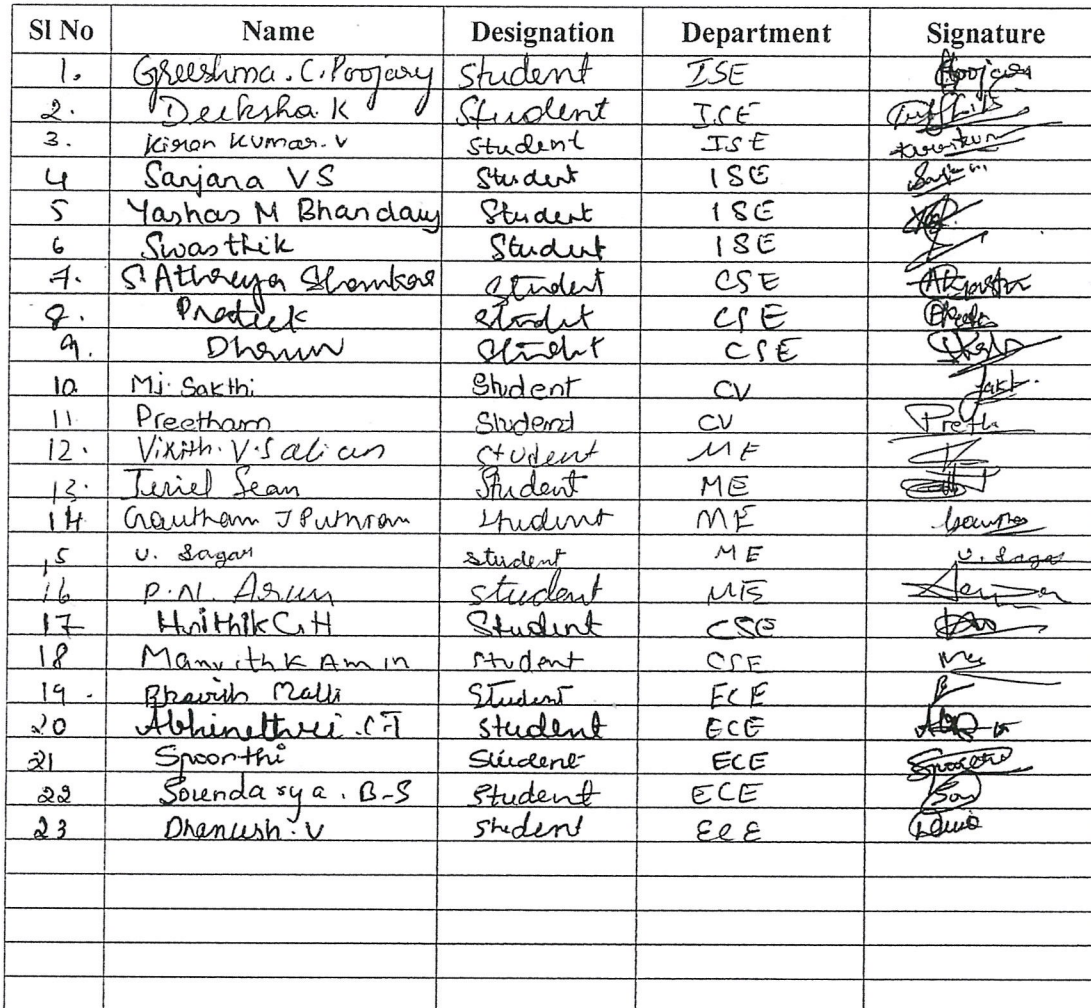 Sl No Name Designation Department Signature
1. Greeshma.C.Poojary Student ISE Poojary
2. Deeksha.K Student ISE
3. Kiran Kumar.V Student ISE
4 Sanjana VS Student ISE
5 Yashas M Bhandary Student ISE
6 Swasthik Student ISE
7. S.Athreya Shankar Student CSE
8. Prateek Student CSE
9. Dhruv Student CSE
10 Mj. Sakthi Student CV
11 Preetham Student CV
12. Vikith.V.Salian Student ME
13. Jeriel Sean Student ME
14 Gautham J Puthran Student ME
15 U. Sagar student ME U. Sagar
16 P.N. Arun student ME
17 Hrithik C.H Student CSE
18 Manvith K Amin Student CSE
19. Bhavith Malli Student ECE
20 Abhinethri.C.T Student ECE
21 Spoorthi Student ECE
22 Soundarya.B-S Student ECE
23 Dhanush.V Student ECE